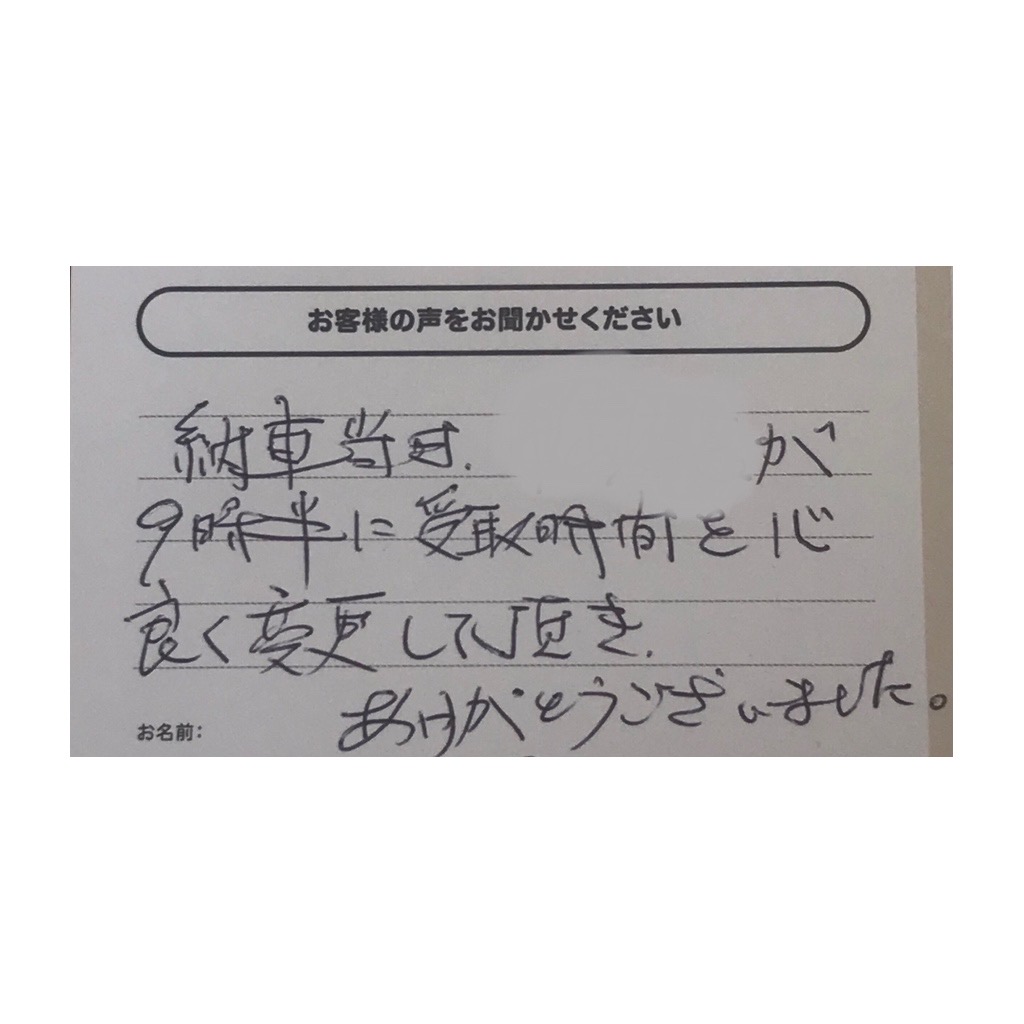 お客様の声をお聞かせください
納車当日、が
9時半に受取時間を心
良く変更して頂き、
ありがとうございました。
お名前: